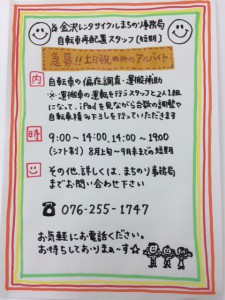 金沢レンタサイクルまちのり事務局
自転車再配置スタッフ[短期]
急募!!土日祝のみのアルバイト
内 自転車の偏在調査・運搬補助
※運搬車の運転を行うスタッフと2人1組
になって、iPadを見ながら台数の調整や
自転車積み下ろしを行っていただきます
時 9:00〜14:00、14:00〜19:00
(シフト制) 8月上旬〜9月末までの短期
その他、詳しくは、まちのり事務局
までお問い合わせ下さい
☎ 076-255-1747
お気軽にお電話ください。
お待ちしておりまぁ〜す☆